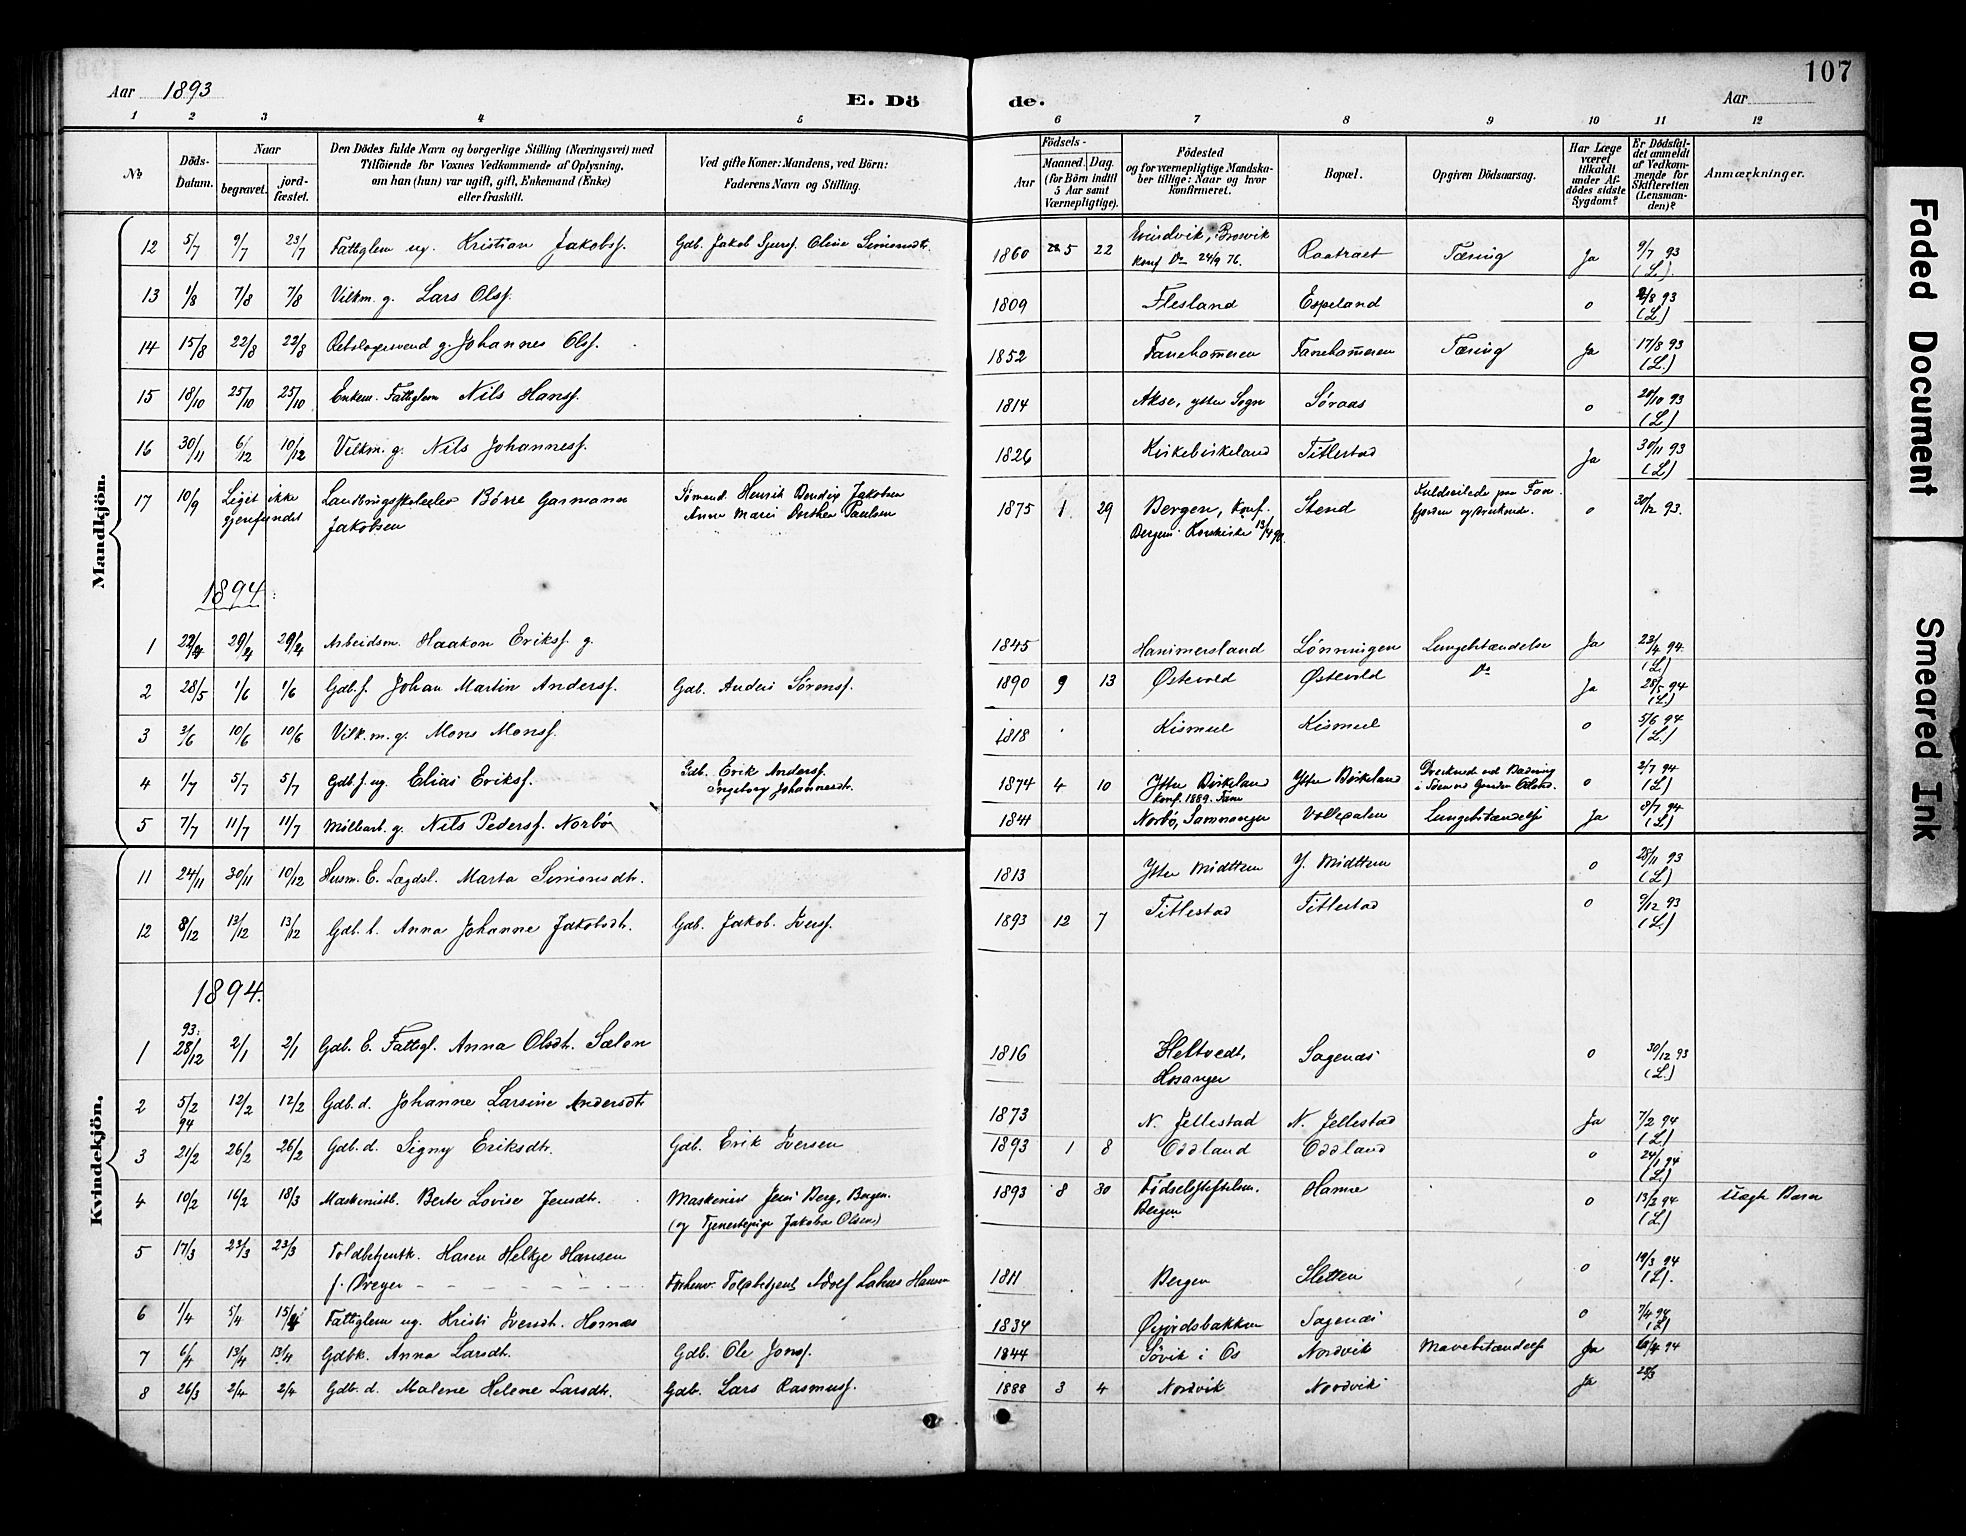 107
Aar 1893
E. Dö
de.
Aar
1 2 3 4 5 6 7 8 9 10 11 12
№ Döds-Datum. Naar begravet. jord-fæstet. Den Dödes fulde Navn og borgerlige Stilling (Næringsvei) med Tilföiende for Voxnes Vedkommende af Oplysning, om han (hun) var ugift, gift, Enkemand (Enke) eller fraskilt. Ved gifte Koner: Mandens, ved Börn: Faderens Navn og Stilling. Födsels- Aar Maaned. Dag. (for Börn indtil 5 Aar samt Værnepligtige). Födested og for værnepligtige Mandska-ber tillige: Naar og hvor konfirmeret. Bopæl. Opgiven Dödsaarsag. Har Læge været tilkaldt under Af-dödes sidste Sygdom? Er Dödsfal-det anmeldt af Vedkom-mende for Skifteretten (Lensman-den)? Anmærkninger.
Mandkjön.
12 5/7 9/7 23/7 Fattiglem ug. Kristian Jakobsf. Gdb. Jakob Sjursf. Oline Simonsdt. 1860 5 22 Evindvik, Brosvik Raatræet Tæring Ja 9/7 93
konf. Do 24/9 76. (L.)
13 1/8 7/8 7/8 Vilkm. g. Lars Olsf. 1809 Flesland Espeland o 2/8 93
(L)
14 15/8 22/8 22/8 Rebslagersvend g. Johannes Olsf. 1852 Fanehammeren Fanehammeren Tæring Ja 17/8 93
(L.)
15 18/10 25/10 25/10 Enkem. Fattiglem Nils Hansf. 1814 Akse, ytter Sogn Søraas o 20/10 93
(L)
16 30/11 6/12 10/12 Vilkm. g. Nils Johannesf. 1826 Kirkebirkeland Titlestad Ja 30/11 93
(L)
17 10/9 Liget ikke Landbrugsskoleelev Börre Garmann Sømand. Henrik Bendix Jakobsen 1875 1 29 Bergen, Konf. Stend Kuldseilede paa Fane- o 30/12 93.
gjenfundet Jakobsen Anna Marie Dorthea Paulsen Bergens Korskirke 13/4 90. fjorden og druknede.
1894
1 22/4 29/4 29/4 Arbeidsm. Haakon Eriksf. g. 1845 Hammersland Lønningen Lungebetændelse Ja 23/4 94.
(L.)
2 28/5 1/6 1/6 Gdb. f. Johan Martin Andersf. Gdb. Anders Sörensf. 1890 9 13 Østevold Østevold Do Ja 28/5 94
(L.)
3 3/6 10/6 10/6 Vilk.m. g. Mons Monsf. 1818 Kismul Kismul o 5/6 94
(L.)
4 1/7 5/7 5/7 Gdb. f. ug. Elias Eriksf. Gdb. Erik Andersf. 1874 4 10 Ytre Birkeland Ytre Birkeland Druknede ved Badning o 2/7 94
Ingeborg Johannesdt. konf. 1889. Fane (L)
5 7/7 11/7 11/7 Möllearb. g. Nils Pedersf. Norbö 1841 Norbø, Sammanger Lungebetændelse Ja 8/7 94
(L)
Kvindekjön.
11 24/11 30/11 10/12 Husm. E. Lægdsl. Marta Simonsdt. 1813 Ytre Midttun Y. Midttun o 25/11 93
(L)
12 8/12 13/12 13/12 Gdb. b. Anna Johanne Jakobsdt. Gdb. Jakob. Iversf. 1893 12 7 Titlestad Titlestad o 9/12 93
(L.)
1894.
93.
1 28/12 2/1 2/1 Gdb. E. Fattigl. Anna Olsdt. Sælen 1816 Heltvedt, Sagenæs o 30/12 93
Hosanger (L.)
2 5/2 12/2 12/2 Gdb. d. Johanne Larsine Andersdt. 1873 N. Jellestad N. Jellestad Ja 7/2 94
94 (L.)
3 21/2 26/2 26/2 Gdb. d. Signy Eriksdt. Gdb. Erik Iversen 1893 1 8 Oddland Oddland o 24/1 94
(L.)
4 10/2 16/2 18/3 Maskinistb. Berte Lovise Jensdt. Maskinist Jens Berg, Bergen. 1893 8 30 Födselsstiftelsen. Hamre o 13/2 94 Uægte Barn
(og Tjenestepige Jakoba Olsen) Bergen (L.)
5 17/3 23/3 23/3 Toldbetjentk. Karen Helkje Hansen
f. Dreyer Forhenv. Toldbetjent Adolf Hansen 1811 Bergen Sletten o 19/3 94
(L).
6 1/4 5/4 15/4 Fattiglem ug. Kristi Iversdt. Hornæs 1834 Øyjordsbakken Sagenæs o 7/4 94
(L)
7 6/4 13/4 13/4 Gdbk. Anna Larsdt. Gdb. Ole Jonsf. 1844 Søvik i Os Nordvik Mavebetændelse Ja 6/4 94
8 26/3 2/4 2/4 Gdb. d. Malene Helene Larsdt. Gdb. Lars Rasmusf. 1888 3 4 Nordvik Nordvik Ja 28/3
Faded Document
Smeared Ink